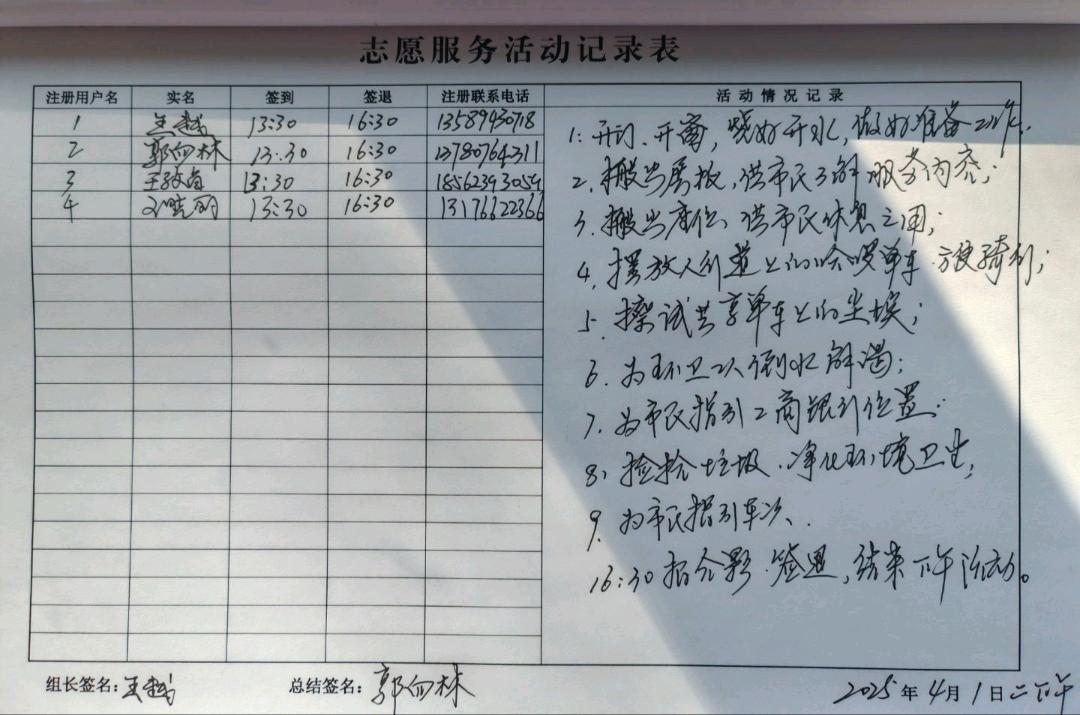 志愿服务活动记录表
注册用户名 实名 签到 签退 注册联系电话 活动情况记录
1 王越 13:30 16:30 13589430718
2 郭向林 13:30 16:30 13780764311
3 13:30 16:30 18562393059
4 13:30 16:30 13176622366
1. 开门、开窗，烧好开水，做好准备工作.
2. 搬出展板，供市民了解服务内容；
3. 搬出座位、供市民休息之用；
4. 摆放人行道上的哈啰单车、方便骑行；
5. 擦试共享单车上的尘埃；
6. 为环卫工人倒水解渴；
7. 为市民指引工商银行位置；
8. 捡拾垃圾、净化环境卫生；
9. 为市民指引车次、.
16:30 拍合影、签退，结束下午活动。
组长签名：王越 总结签名：郭向林 2025年4月1日二下午